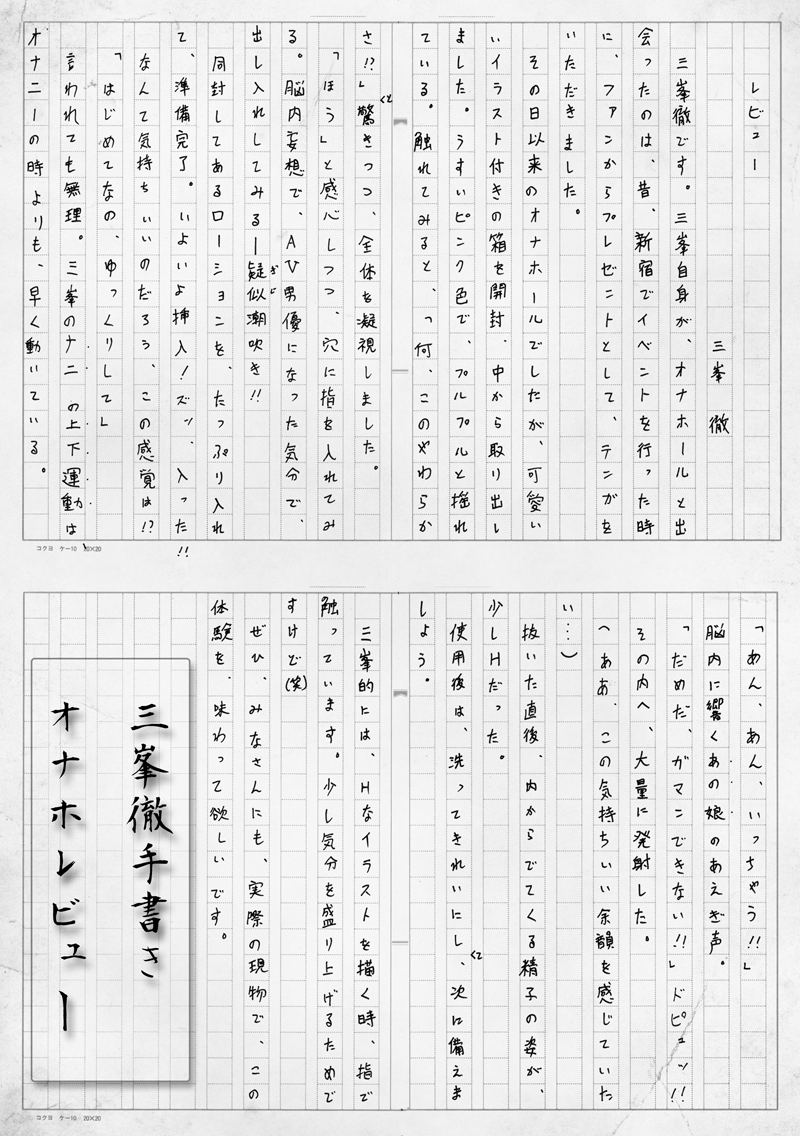 レビュー
三峯 徹
三峯徹です。三峯自身が、オナホールと出
会ったのは、昔、新宿でイベントを行った時
に、ファンからプレゼントとして、テンガを
いただきました。
その日以来のオナホールでしたが、可愛い
いイラスト付きの箱を開封、中から取り出し
ました。うすいピンク色で、プルプルと揺れ
ている。触れてみると、「何、このやわらか
さ!?」と驚きつつ、全体を凝視しました。
「ほう」と感心しつつ、穴に指を入れてみ
る。脳内妄想で、AV男優になった気分で、
出し入れしてみるー疑似潮吹き!!
ぎじ
同封してあるローションを、たっぷり入れ
て、準備完了。いよいよ挿入!ズン、入った!!
なんて気持ちいいのだろう、この感覚は!?
「はじめてなの、ゆっくりして」
言われても無理。三峯のナニの上下運動は、
オナニーの時よりも、早く動いている。
コクヨ ケー10 20×20
「あん、あん、いっちゃう!!」
脳内に響くあの娘のあえぎ声。
「だめだ、ガマンできない!!」ドピュッ!!
その内へ、大量に発射した。
(ああ、この気持ちいい余韻を感じていた
い…)
抜いた直後、内からでてくる精子の姿が、
少しHだった。
使用後は、洗ってきれいにして、次に備えま
しょう。
三峯的には、Hなイラストを描く時、指で
触っています。少し気分を盛り上げるためで
すけど(笑)
ぜひ、みなさんにも、実際の現物で、この
体験を、味わって欲しいです。
三峯徹手書き
オナホレビュー
コクヨ ケー10 20×20